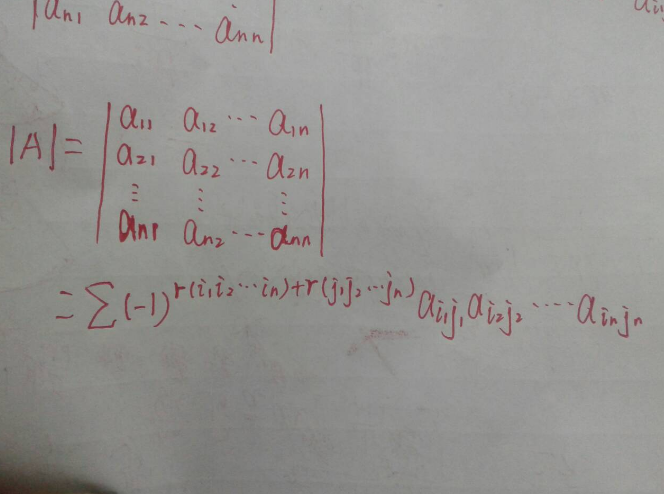 |aₙ₁ aₙ₂ ... aₙₙ|
|A| = | a₁₁ a₁₂ ... a₁ₙ |
| a₂₁ a₂₂ ... a₂ₙ |
| ⋮ ⋮ ⋮ |
| aₙ₁ aₙ₂ ... aₙₙ |
= ∑ (-1)^{r(i₁i₂...iₙ)+r(j₁j₂...jₙ)} a_{i₁j₁} a_{i₂j₂} .... a_{iₙjₙ}